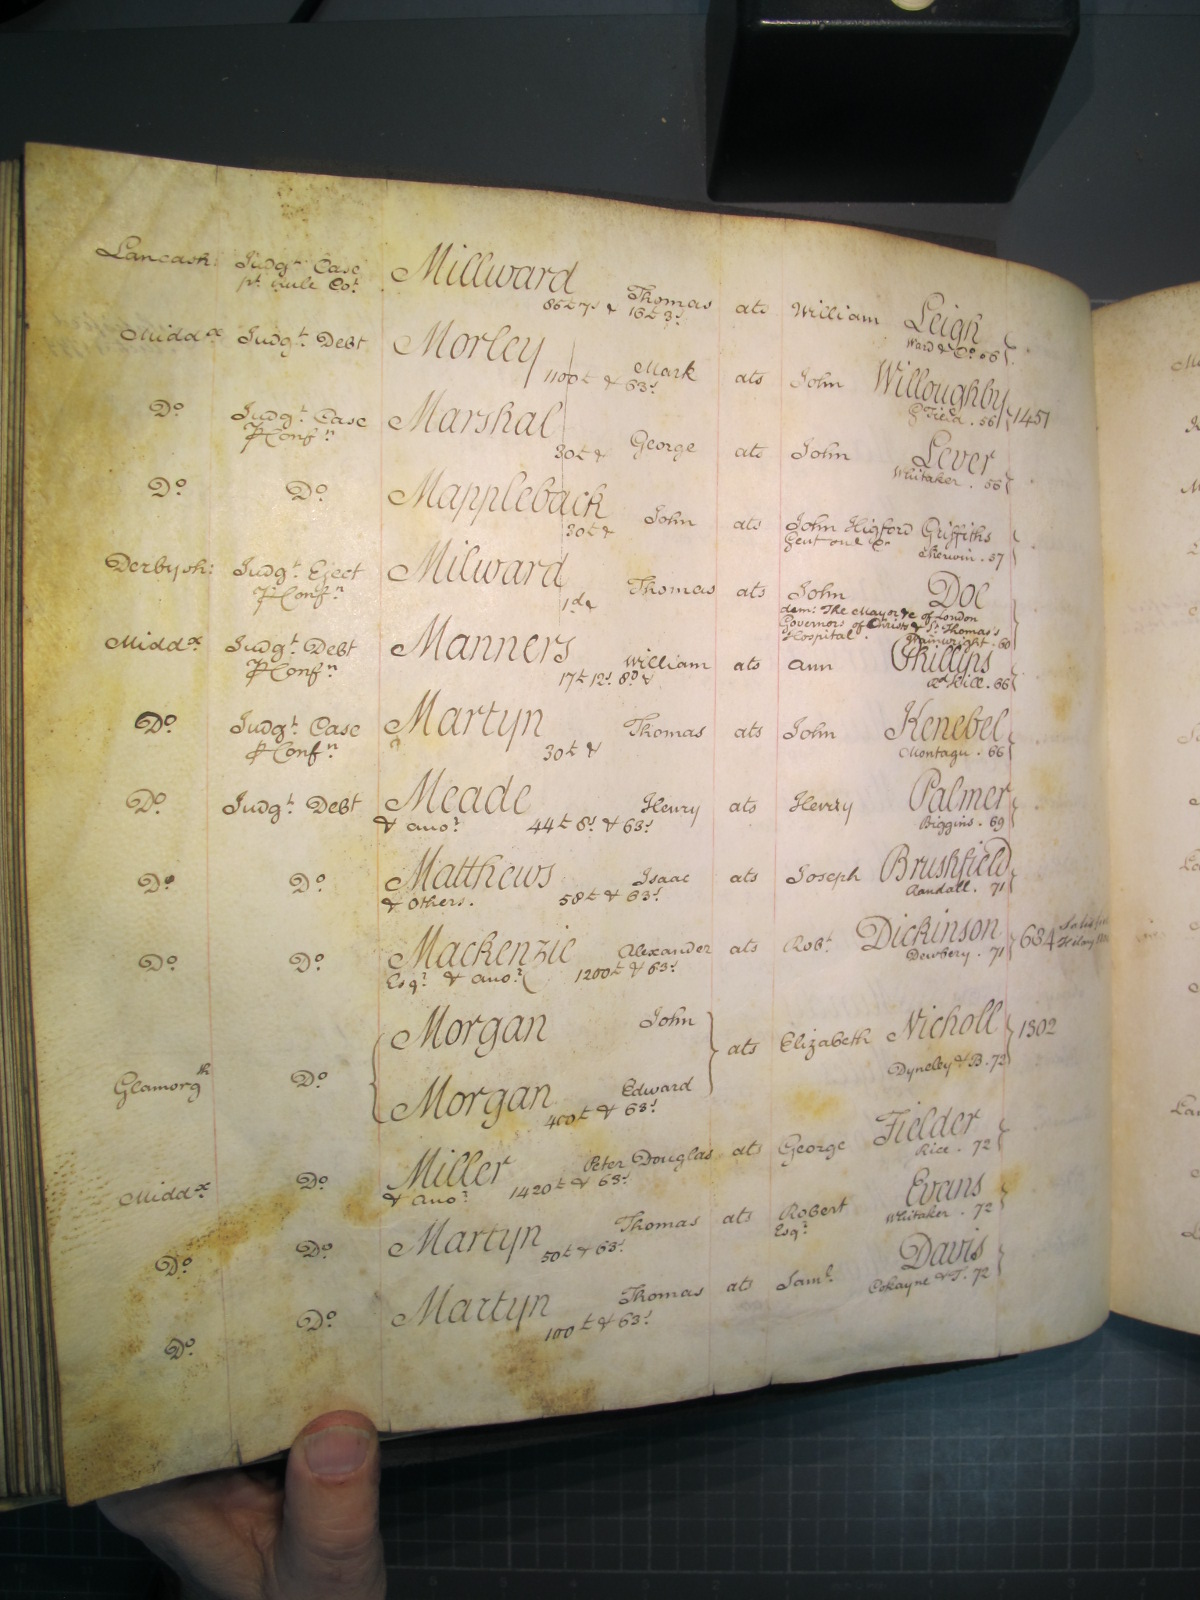 Lancash: Judgt. Case Millward Thomas ats William Leigh
pt. rule Cot. 86£ 7s & 16£ 3s. Ward & Co. 56
Middx Judgt. Debt Morley Mark ats John Willoughby
1100£ & 63s G Field. 56 1451
Do. Judgt. Case Marshal George ats John Lever
P Confn. 30£ & Whitaker. 56
Do. Do. Mappleback John ats John Higford Griffiths
30£ & Gent one &c. Sherwin. 57
Derbysh: Judgt. Eject Milward Thomas ats John Doe
P Confn. 1d &
dem: The Mayor &c of London
Governors of Christs & St. Thomas's
Hospital. Wainwright. 60
Middx. Judgt. Debt Manners William ats Ann Phillips
P Confn. 17£ 12s. 8D & Rice. 66
Do. Judgt. Case Martyn Thomas ats John Kenebel
P Confn. 30£ & Montagu. 66
Do. Judgt. Debt Meade Henry ats Henry Palmer
& anor. 44£ 8s. & 63s. Biggins. 69
Do. Do. Matthews Isaac ats Joseph Brushfield
& Others. 58£ & 63s. Randall. 71
Do. Do. Mackenzie Alexander ats Robt. Dickinson 634 Satisfied
Esqr. & anor. 1200£ & 63s. Dewbery. 71 Hilary
Morgan John
Glamorgsh Do. ats Elizabeth Nicholl 1302
Dyneley & B. 72
Morgan Edward
400£ & 63s.
Middx. Do. Miller Peter Douglas ats George Fielder
& anor. 1420£ & 63s. Rice. 72
Do. Do. Martyn Thomas ats Robert Evans
50£ & 63s. Esqr. Whitaker. 72
Do. Do. Martyn Thomas ats Saml. Davis
100£ & 63s. Cokayne & T. 72